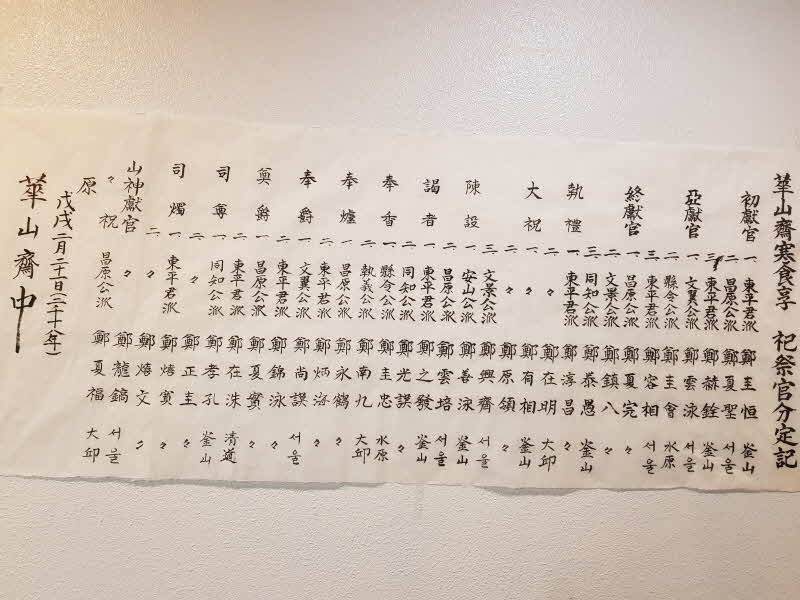 華山齋寒食享 祀祭官分定記
初獻官 一 東平君派 鄭圭恒 釜山
二 昌原公派 鄭夏聖 서울
三 東平君派 鄭赫銓 釜山
亞獻官 一 文翼公派 鄭雲泳 서울
二 縣令公派 鄭圭會 水原
三 東平君派 鄭容相 서울
終獻官 一 昌原公派 鄭夏完 〃
二 文景公派 鄭鎮八 〃
三 同知公派 鄭泰愚 釜山
執禮 一 東平君派 鄭淳昌 〃
大祝 一 〃 鄭在明 大邱
二 〃 鄭有相 釜山
〃 鄭原領 〃
文景公派 鄭興齊 서울
陳設 一 安山公派 鄭善泳 釜山
二 昌原公派 鄭雲培 서울
謁者 一 東平君派 鄭之發 釜山
二 同知公派 鄭光謨 〃
奉香 一 縣令公派 鄭圭忠 水原
二 執義公派 鄭南九 大邱
奉爐 一 昌原公派 鄭永鶴 〃
二 東平君派 鄭炳海 〃
奉爵 一 文翼公派 鄭尚謨 서울
二 東平君派 鄭錦泳 〃
奠爵 一 昌原公派 鄭夏實 〃
二 東平君派 鄭在洙 清道
司尊 一 同知公派 鄭孝孔 釜山
二 〃 鄭正圭 〃
司燭 一 東平君派 鄭寅 〃
二 〃 鄭文 〃
山神獻官 〃 鄭龍鎬 서울
〃 祝 昌原公派 鄭夏福 大邱
原
戊戌二月二十日(二千十八年)
華山齋中